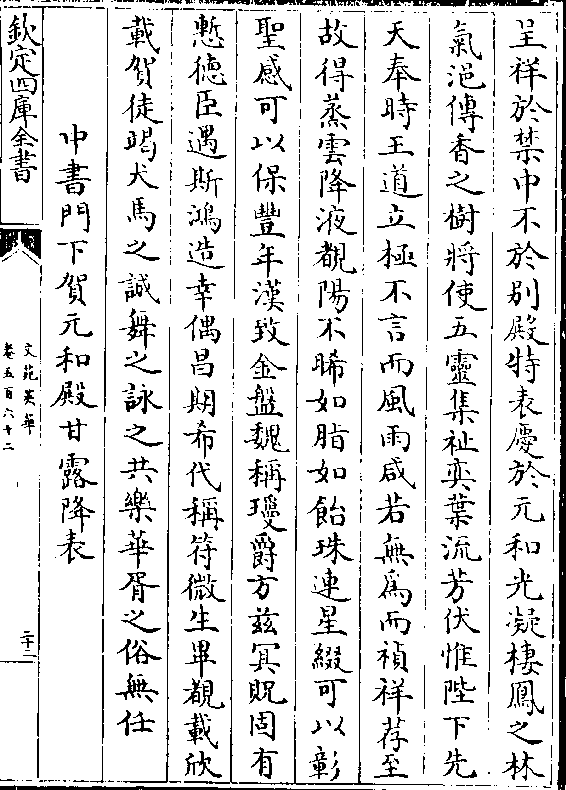 呈祥於禁中不於别殿特表慶於元和光凝棲鳳之林
氣浥傳香之樹將使五靈集祉奕葉流芳伏惟陛下先
天奉時王道立極不言而風雨咸若無爲而禎祥荐至
故得蒸雲降液覩陽不晞如脂如飴珠連星綴可以彰
聖感可以保豐年漢致金盤魏稱瓊爵方兹冥貺固有
慙德臣遇斯鴻造幸偶昌期希代稱符微生畢覩載欣
載賀徒竭犬馬之誠舞之詠之共樂華胥之俗無任
中書門下賀元和殿甘露降表
欽定四庫全書
文苑英華
卷五百六十二
二十二